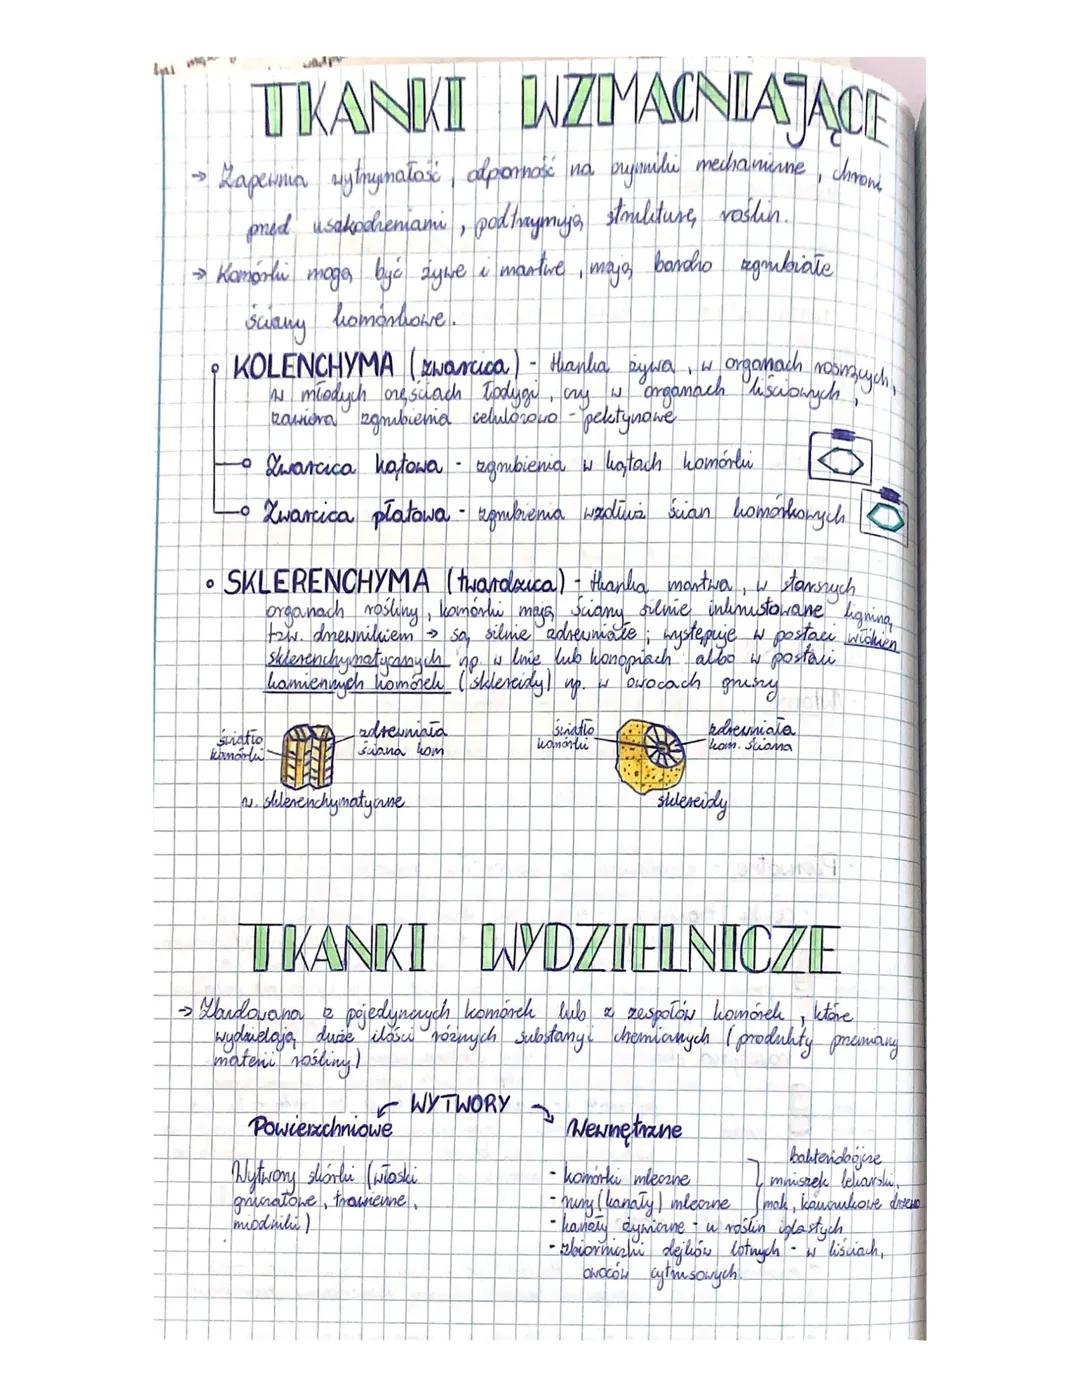 TKANKI WZMACNIAJĄCE
→ Zapewnia wytrzymałość, odporność na czynniki mechaniczne, chroni
przed uszkodzeniami, podtrzymują strukturę roślin.
→ Komórki mogą być żywe i martwe, mają bardzo zgrubiałe
ściany komórkowe.
• KOLENCHYMA (zwarcica) - tkanka żywa, w organach rosnących,
w młodych częściach łodygi, czy w organach liściowych,
zawiera zgrubienia celulozowo - pektynowe
Zwarcica kątowa - zgrubienia w kątach komórki
Zwarcica płatowa - zgrubienia wzdłuż ścian komórkowych
• SKLERENCHYMA (twardzica) - tkanka martwa, w starszych
organach rośliny, komórki mają ściany silnie inkrustowane ligniną,
tzw. drzewnikiem → są silnie zdrewniałe; występuje w postaci włókien
sklerenchymatycznych np. w lnie lub konopiach albo w postaci
kamiennych komórek (sklereidy) np. w owocach gruszy
światło komórki
zdrewniała ściana kom
w. sklerenchymatyczne
światło komórki
zdrewniała kom. ściana
sklereidy
TKANKI WYDZIELNICZE
→ Zbudowana z pojedynczych komórek lub z zespołów komórek, które
wydzielają duże ilości różnych substancji chemicznych (produkty przemiany
materii rośliny)
WYTWORY
Powierzchniowe
Wytwory skórki (włoski
gruczołowe, trawienne,
miodniki)
Wewnętrzne
- komórki mleczne
- rury (kanały) mleczne
bakteriobójcze
mniszek lekarski,
mak, kauczukowe drzewo
- kanały żywiczne - u roślin iglastych
- zbiorniczki olejków lotnych - w liściach,
owoców cytrusowych.